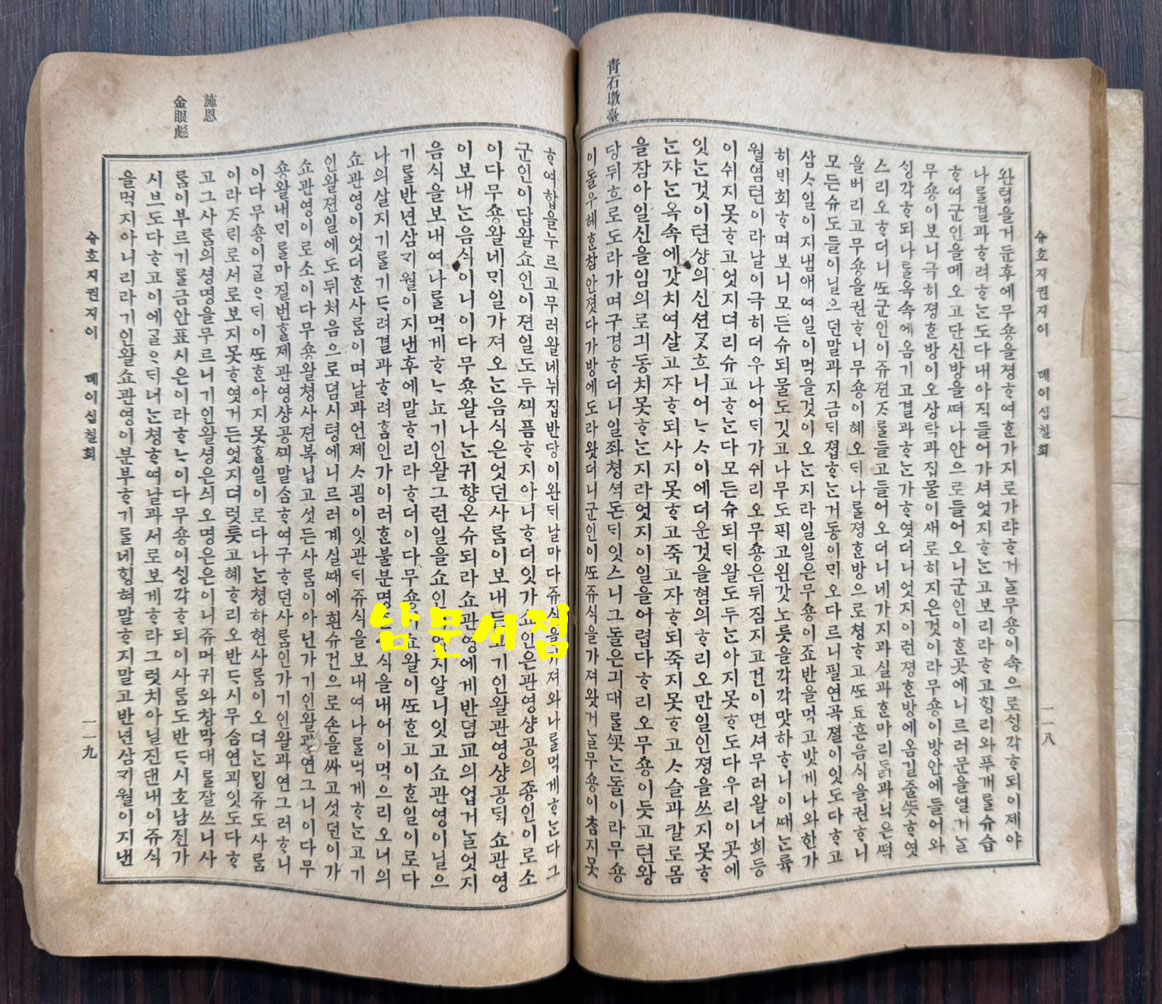 靑石墩臺
슈호지권지이 뎨이십칠회
一一八
완텹을거둔후에무숑을쳥ᄒᆞ여ᄒᆞᆫ가지로가랴ᄒᆞ거ᄂᆞᆯ무숑이속으로ᄉᆡᆼ각ᄒᆞ되이제야
나ᄅᆞᆯ결과ᄒᆞ려ᄒᆞᄂᆞᆫ도다대아직들어가셔엇지ᄒᆞᄂᆞᆫ고보리라ᄒᆞ고ᄒᆡᆼ리와푸개ᄅᆞᆯ슈습
ᄒᆞ여군인을메오고단신방을ᄯᅥ나안으로들어오니군인이ᄒᆞᆫ곳에니르러문을열거ᄂᆞᆯ
무숑이보니극히졍ᄒᆞᆫ방이오상탁과집물이새로히지은것이라무숑이방안에들어와
ᄉᆡᆼ각ᄒᆞ되나ᄅᆞᆯ옥속에옴기고결과ᄒᆞᄂᆞᆫ가ᄒᆞ엿더니엇지이런졍ᄒᆞᆫ방에옴길줄ᄯᅳᆺᄒᆞ엿
스리오ᄒᆞ더니ᄯᅩ군인이쥬젼ᄌᆞᄅᆞᆯ들고들어오더니네가지과실과ᄒᆞᆫ마리ᄃᆞᆰ과닉은ᄯᅥᆨ
을버리고무숑을권ᄒᆞ니무숑이혜오ᄃᆡ나ᄅᆞᆯ졍ᄒᆞᆫ방으로쳥ᄒᆞ고ᄯᅩ됴흔음식을권ᄒᆞ니
모든슈도들이닐ᄋᆞ던말과지금ᄃᆡ졉ᄒᆞᄂᆞᆫ거동이ᄆᆡ오다르니필연곡졀이잇도다ᄒᆞ고
삼ᄉᆞ일이지냄애여일이먹을것이오ᄂᆞᆫ지라일일은무숑이죠반을먹고밧게나와한가
히ᄇᆡ회ᄒᆞ며보니모든슈되물도깃고나무도픠고왼갓노릇을각각맛하ᄒᆞ니이ᄯᅢᄂᆞᆫ륙
월염텬이라날이극히더우나어ᄃᆡ가쉬리오무숑은뒤짐지고건이면셔무러왈너희등
이쉬지못ᄒᆞ고엇지뎌리슈고ᄒᆞᄂᆞᆫ다모든슈되ᄃᆡ왈도두ᄂᆞᆫ아지못ᄒᆞ도다우리이곳에
잇ᄂᆞᆫ것이텬샹의신션ᄀᆞᆺᄒᆞ니어ᄂᆞᄉᆞ이에더운것을혐의ᄒᆞ리오만일인졍을쓰지못ᄒᆞ
ᄂᆞᆫ쟈ᄂᆞᆫ옥속에갓치여살고자ᄒᆞ되사지못ᄒᆞ고죽고자ᄒᆞ되죽지못ᄒᆞ고ᄉᆞ슬과칼로몸
을잠아일신을임의로긔동치못ᄒᆞᄂᆞᆫ지라엇지이일을어렵다ᄒᆞ리오무숑이듯고텬왕
당뒤흐로도라가며구경ᄒᆞ더니일좌쳥셕돈ᄃᆡ잇스니그돌은긔대ᄅᆞᆯᄭᅩᆺᄂᆞᆫ돌이라무숑
이돌우헤ᄒᆞᆫ참안졋다가방에도라왓더니군인이ᄯᅩ쥬식을가져왓거ᄂᆞᆯ무숑이ᄎᆞᆷ지못
施恩
金眼彪
ᄒᆞ여합을누르고무러왈네뉘집반당이완ᄃᆡ날마다쥬식을가져와나ᄅᆞᆯ먹게ᄒᆞᄂᆞᆫ다그
군인이답왈쇼인이젼일도두ᄭᅴ픔ᄒᆞ지아니ᄒᆞ더잇가쇼인은관영샹공의죵인이로소
이다무숑왈네ᄆᆡ일가져오ᄂᆞᆫ음식은엇던사ᄅᆞᆷ이보내ᄃᆞ고기인왈관영샹공ᄃᆡᆨ쇼관영
이보내ᄂᆞᆫ음식이니이다무숑왈나ᄂᆞᆫ귀향온슈되라쇼관영에게반뎜교의업거ᄂᆞᆯ엇지
음식을보내여나ᄅᆞᆯ먹게ᄒᆞᄂᆞ뇨기인왈그런일을쇼인이엇지알니잇고쇼관영이닐ᄋᆞ
기ᄅᆞᆯ반년삼ᄀᆡ월이지낸후에말ᄒᆞ리라ᄒᆞ더이다무숑왈쇼왈이ᄯᅩᄒᆞᆫ고이ᄒᆞᆫ일이로다
나의살지기ᄅᆞᆯ기ᄃᆞ려결과ᄒᆞ려흠인가이러ᄒᆞᆫ불분명ᄒᆞᆫ쥬식을내어이먹으리오너의
쇼관영이엇더ᄒᆞᆫ사ᄅᆞᆷ이며날과언제ᄉᆞ괴임이잇관ᄃᆡ쥬식을보내여나ᄅᆞᆯ먹게ᄒᆞᄂᆞᆫ고기
인왈젼일에도두처음으로뎜시텽에니르러계실ᄯᅢ에흰슈건으로손을싸고섯던이가
쇼관영이로소이다무숑왈쳥사젼복닙고섯든사ᄅᆞᆷ이아닌가기인왈과연그니이다무
숑왈내ᄆᆡᄅᆞᆯ마질번ᄒᆞᆯ제관영샹공ᄭᅴ말ᄉᆞᆷᄒᆞ여구ᄒᆞ던사ᄅᆞᆷ인가기인왈과연그러ᄒᆞ니
이다무숑이ᄀᆞᆯᄋᆞᄃᆡ이ᄯᅩᄒᆞᆫ아지못ᄒᆞᆯ일이로다나ᄂᆞᆫ쳥하현사ᄅᆞᆷ이오뎌ᄂᆞᆫᄆᆡᆼ쥬도사ᄅᆞᆷ
이라ᄌᆞ린로서로보지못ᄒᆞ엿거든엇지뎌럿틋고혜ᄒᆞ리오반ᄃᆞ시무ᄉᆞᆷ연괴잇도다ᄒᆞ
고그사ᄅᆞᆷ의셩명을무르니기인왈셩은싀오명은은이니쥬머귀와창막대ᄅᆞᆯ잘쓰니사
ᄅᆞᆷ이부르기ᄅᆞᆯ금안표시은이라ᄒᆞᄂᆞ이다무숑이ᄉᆡᆼ각ᄒᆞ되이사ᄅᆞᆷ도반ᄃᆞ시호남진가
시브도다ᄒᆞ고이에ᄀᆞᆯᄋᆞᄃᆡ너ᄂᆞᆫ쳥ᄒᆞ여날과서로보게ᄒᆞ라그럿치아닐진댄내이쥬식
을먹지아니리라기인왈쇼관영이분부ᄒᆞ기ᄅᆞᆯ네ᄒᆡᆼ혀말ᄒᆞ지말고반년삼ᄀᆡ월이지낸
슈호지권지이 뎨이십칠회
一一九
남문서점